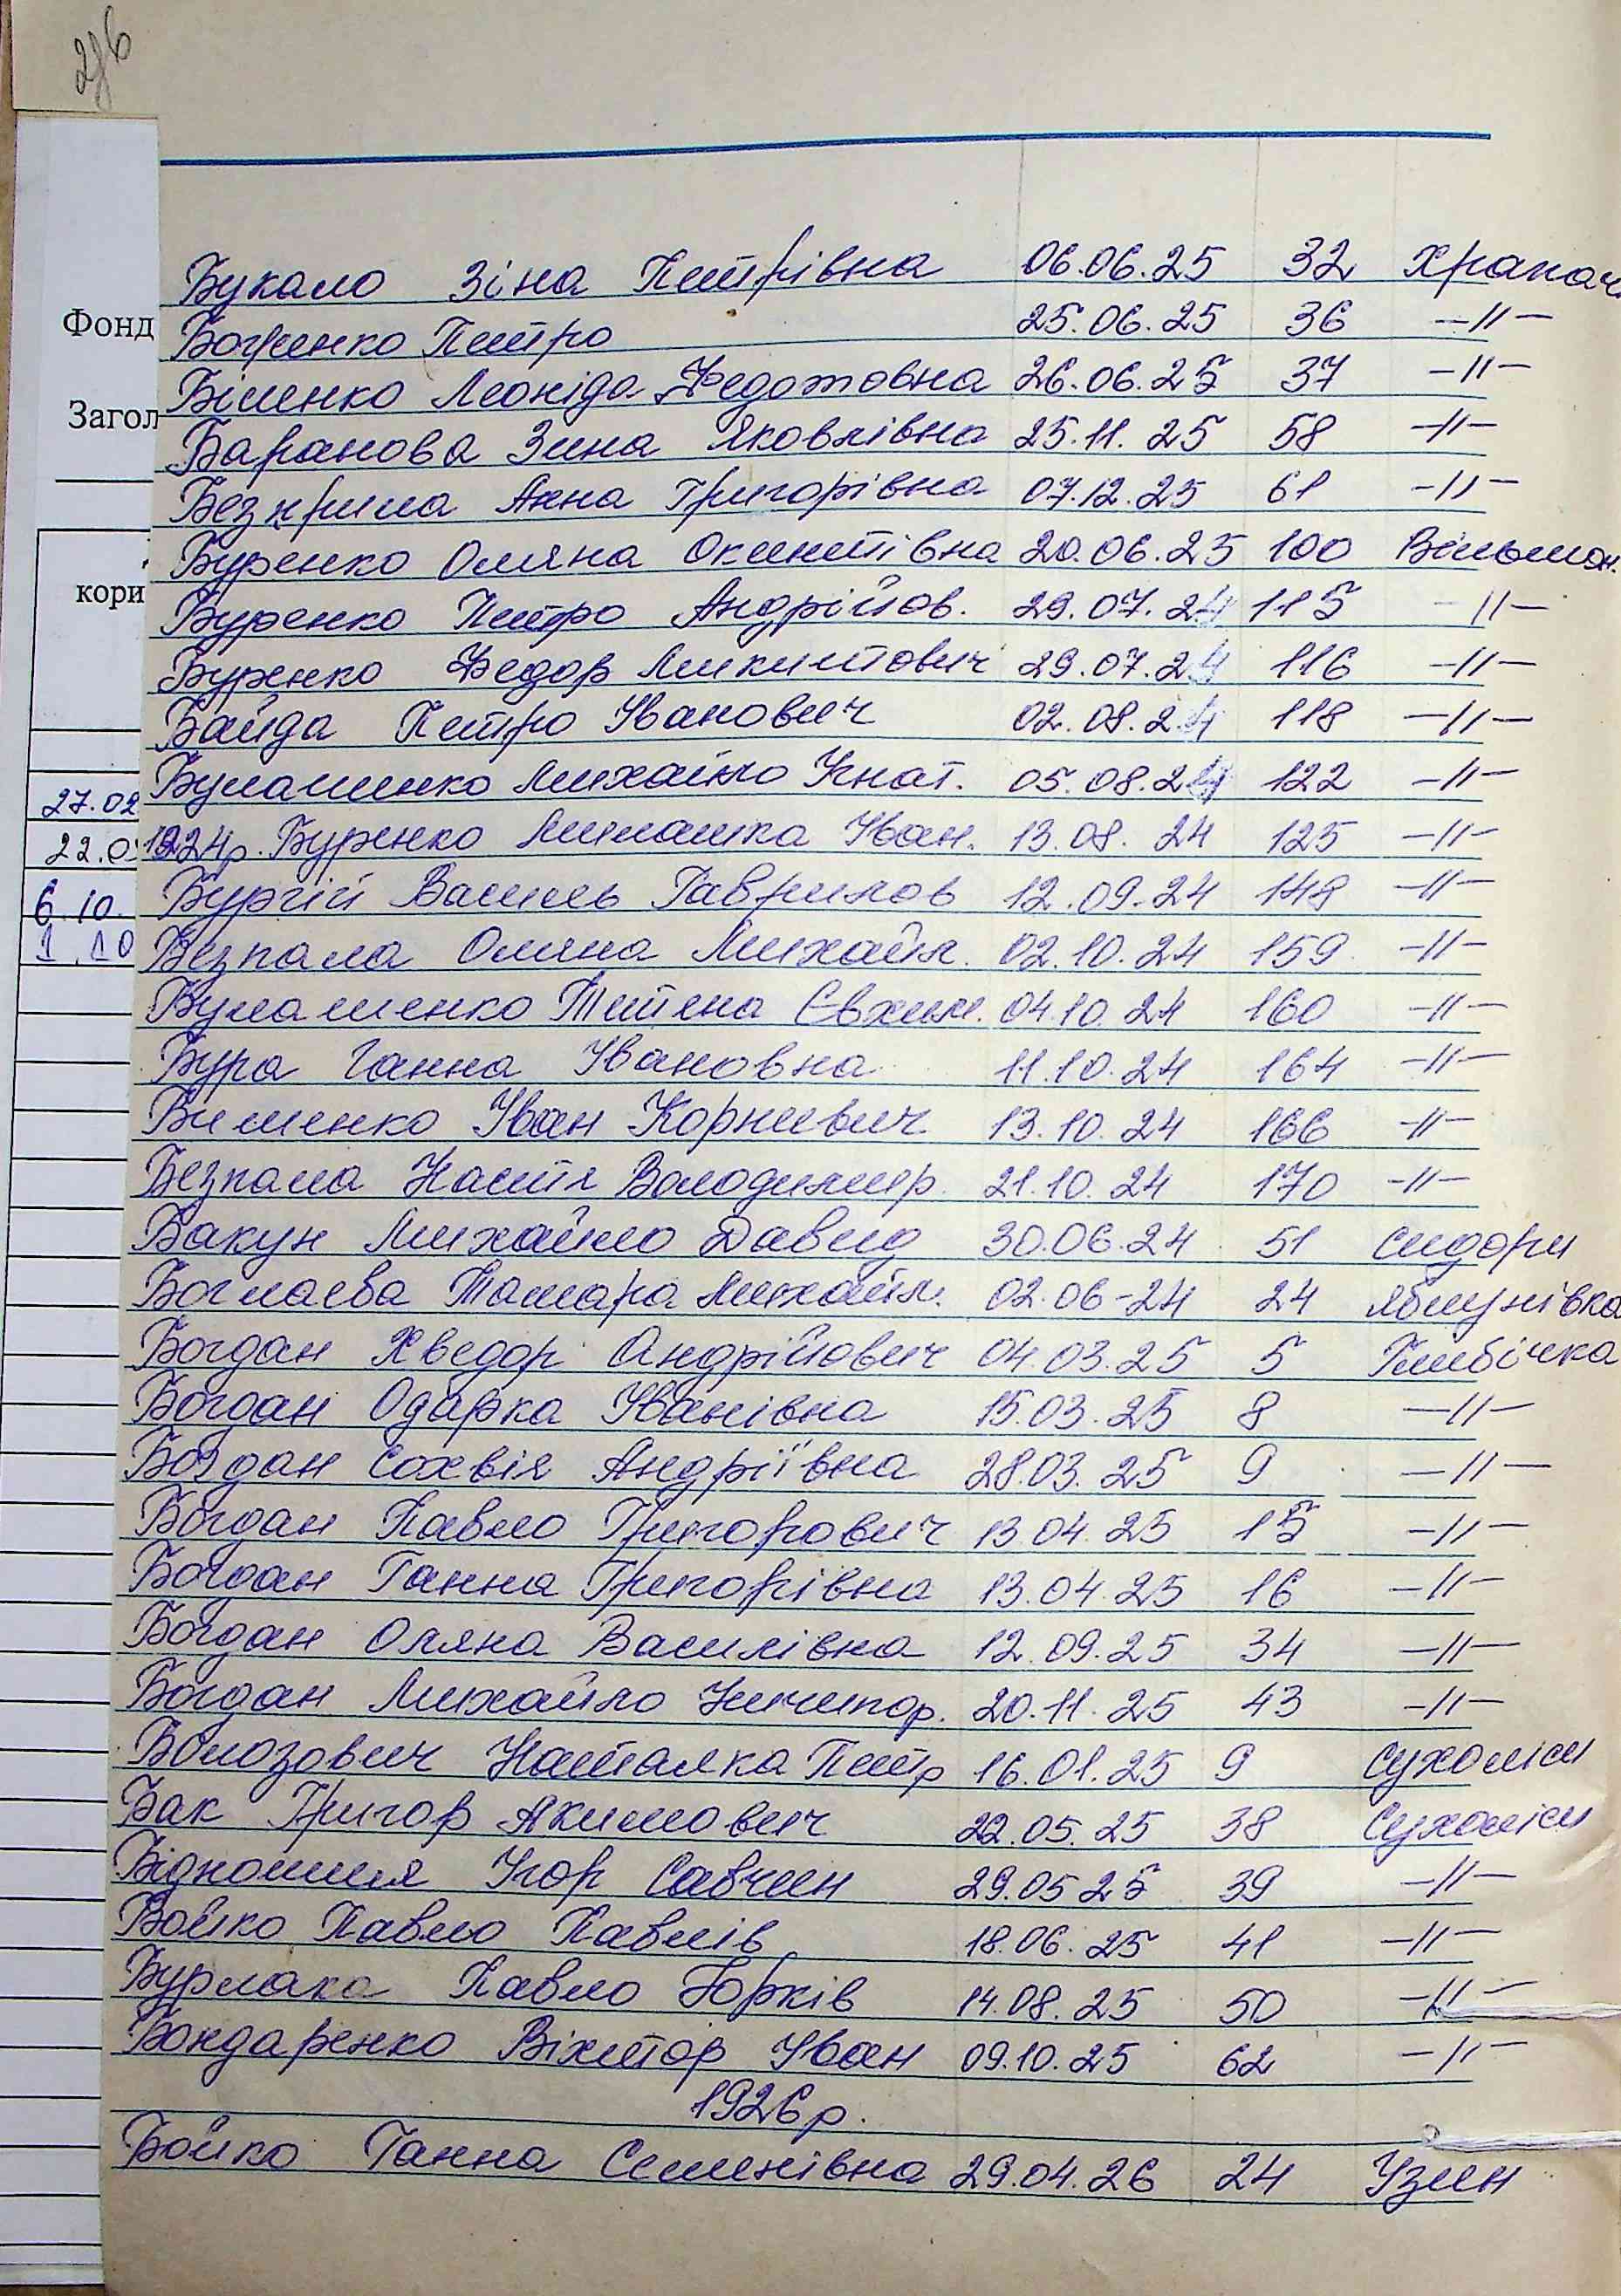 Фонд
Загол
кори
27.02
22.0
6.10.
1.10
Букало Зіна Петрівна 06.06.25 32 Храпач
Боженко Петро 25.06.25 36 -//-
Біленко Леоніда Федотовна 26.06.25 37 -//-
Баранова Зина Яковлівна 25.11.25 58 -//-
Безкрила Анна Григорівна 07.12.25 61 -//-
Буренко Оляна Окентіівна 20.06.25 100 Вільшан.
Буренко Петро Андрійов. 29.07.24 115 -//-
Буренко Федор Микитович 29.07.24 116 -//-
Байда Петро Іванович 02.08.24 118 -//-
Булашенко МихайлоІгнат. 05.08.24 122 -//-
1924р. Буренко Лимашка Іван. 13.08.24 125 -//-
Бургій Василь Гаврилов 12.09.24 148 -//-
Безпала Оляна Михайл. 02.10.24 159 -//-
Булашенко Тетяна Євхим. 04.10.24 160 -//-
Бура Ганна Івановна 11.10.24 164 -//-
Биленко Іван Корнієвич. 13.10.24 166 -//-
Безпала Настя Володимир. 21.10.24 170 -//-
Бакун Михайло Давид 30.06.24 51 Сидори
Боглаєва Тамара Михайл. 02.06-24 24 Яблунівка
Богдан Хведор Андрійович 04.03.25 5 Глибічка
Богдан Одарка Іванівна 15.03.25 8 -//-
Богдан Сохвія Андріївна 28.03.25 9 -//-
Богдан Павло Григорович 13.04.25 15 -//-
Богдан Ганна Григорівна 13.04.25 16 -//-
Богдан Оляна Василівна 12.09.25 34 -//-
Богдан Михайло Ничипор. 20.11.25 43 -//-
Білозович Наталка Петр 16.01.25 9 Сухоліси
Бак Григор Якимович 22.05.25 38 Сухоліси
Бідношия Ігор Савчин 29.05.25 39 -//-
Бойко Павло Павлів 18.06.25 41 -//-
Бурлака Павло Юрків 14.08.25 50 -//-
Бондаренко Віхтор Іван 09.10.25 62 -//-
1926р.
Бойко Ганна Семенівна 29.04.26 24 Узин